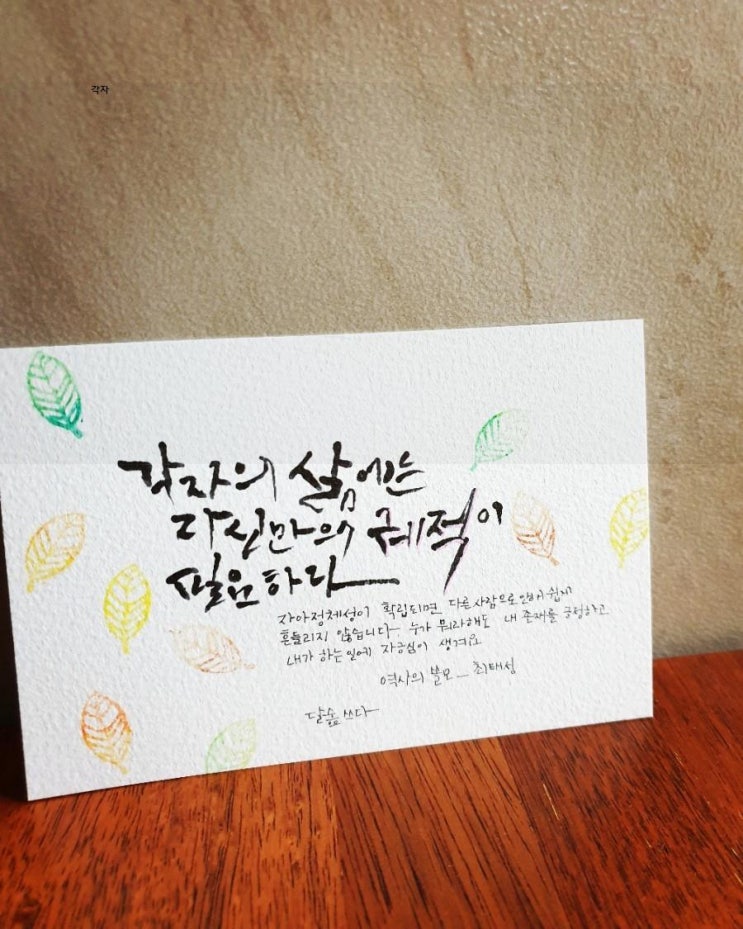 각자
각자의 삶에는
자신만의 궤적이
필요하다
자아정체성이 확립되면 다른 사람으로 인해 쉽게
흔들리지 않습니다 누가 뭐라해도 내 존재를 긍정하고
내가 하는 일에 자긍심이 생겨요
역사의 쓸모 _ 최태성
쓰다